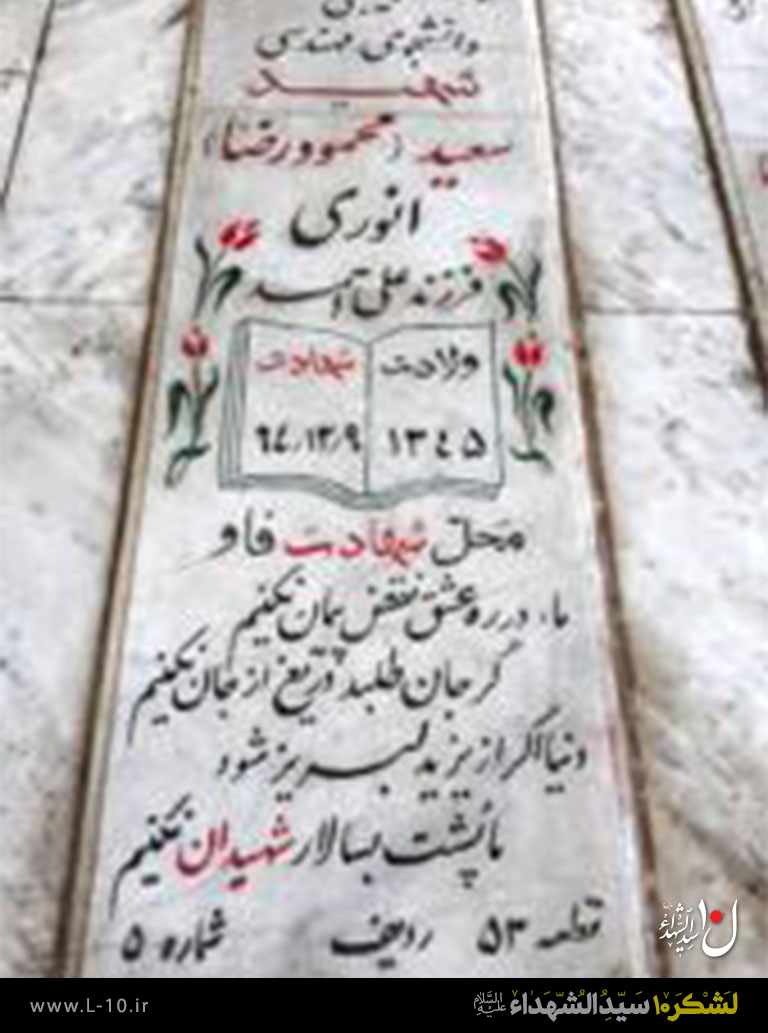 دانشجوی مهندسی
شهید
سعید (محمودرضا)
انوری
فرزند علی احمد
ولادت شهادت
۱۳٤۵ ۶٤/۱۲/۹
محل شهادت فاو
ما، در ره عشق نقض پیمان نکنیم
گر جان طلبد دریغ از جان نکنیم
دنیا اگر از یزید لبریز شود
ما پشت بسالار شهیدان نکنیم
قطعه ۵۳ ردیف شماره ۵
ل۱۰ سیدالشهداء
www.L-10.ir لشکر۱۰ سیدالشهداء علیه السلام